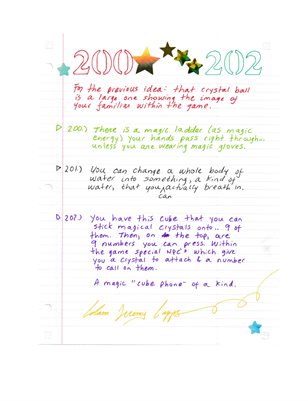 200 202
For the previous idea: that crystal ball
is a large one showing the image of
your familiars within the game.
200.) There is a magic ladder (as magic
energy) your hands pass right through...
unless you are wearing magic gloves.
201.) You can change a whole body of
water into something, a kind of
water, that you actually breath in.
can
202.) You have this cube that you can
stick magical crystals onto.. 9 of
them. Then, on the top, are
9 numbers you can press. Within
the game special NPC's which give
you a crystal to attach & a number
to call on them.
A magic "cube phone" of a kind.
Adam Jeremy Capps